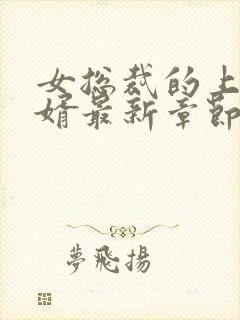 女总裁的上
婿最新章節
夢飛揚